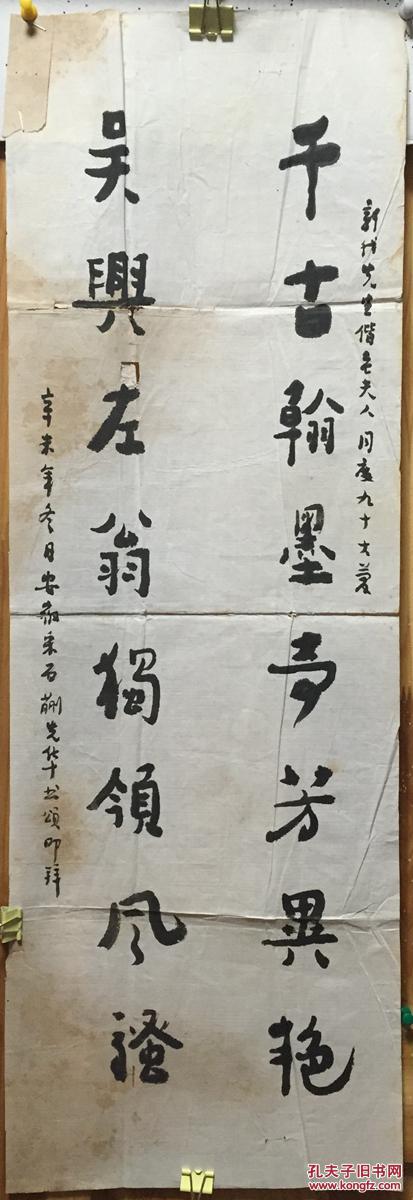 新我先生偕老夫人同庆九十大寿
千古翰墨奇芳異艳
吴興左翁獨領风騷
辛未年冬月安徽采石蒯先华书頌叩拜
孔夫子旧书网
www.kongfz.com